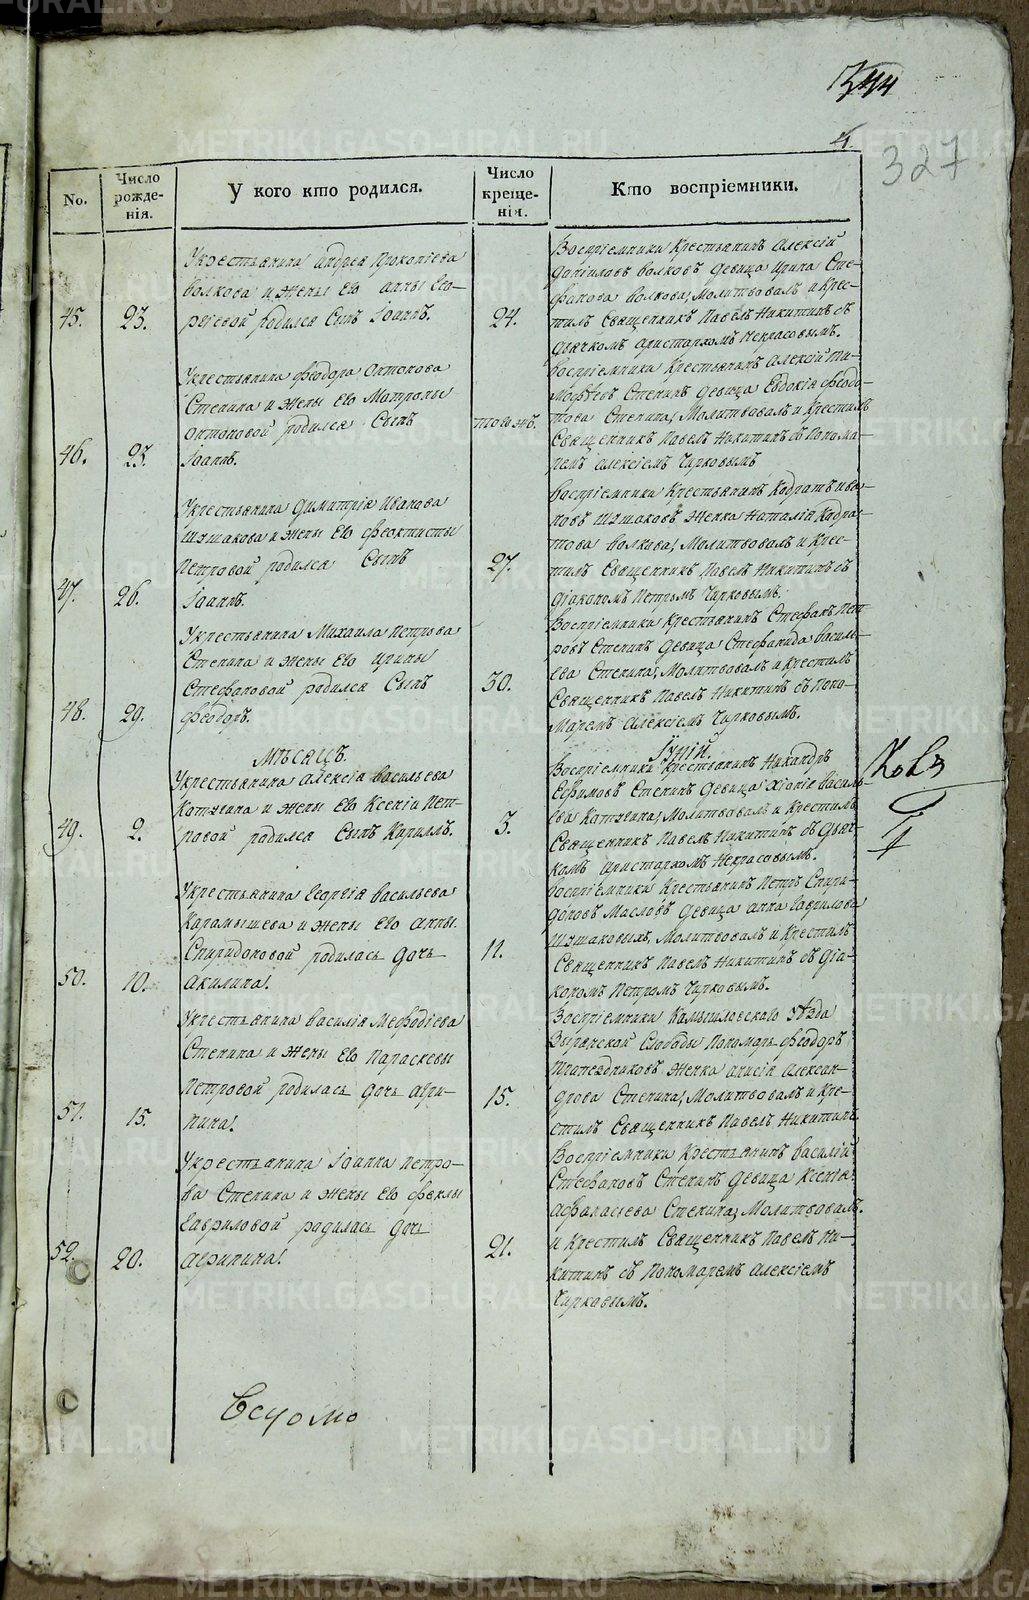 344
4.
327
No.
Число рожде-нія.
У кого кто родился.
Число креще-нія.
Кто воспріемники.
45.
23.
У крестьянина Андрея Прокопіева
Волкова и жены Его Анны Его-
рьевой родился Сынъ Іоаннъ.
24.
Воспріемники Крестьянинъ Алексій
Даніиловъ Волковъ Девица Ирина Сте-
фанова Волкова, Молитвовалъ и Крес-
тилъ Священникъ Павелъ Никитинъ съ
Дьячкомъ Аристархомъ Некрасовымъ.
46.
25.
У крестьянина Феодора Антонова
Степина и жены Его Матроны
Антоновой родился Сынъ
Іоаннъ.
тогожъ.
Воспріемники Крестьянинъ Алексій Ти-
мофѣевъ Степинъ Девица Евдокія Феодо-
това Степина, Молитвовалъ и Крестилъ
Священникъ Павелъ Никитинъ съ Понома-
ремъ Алексіемъ Чирковымъ
47.
26.
У крестьянина Димитрія Иванова
Шишакова и жены Его Феоктисты
Петровой родился Сынъ
Іоаннъ.
27.
Воспріемники Крестьянинъ Кодратъ Ива-
новъ Шишаковъ Женка Наталія Кодра-
това Волкова, Молитвовалъ и Крес-
тилъ Священникъ Павелъ Никитинъ съ
Діакономъ Петромъ Чирковымъ.
48.
29.
У крестьянина Михаила Петрова
Степина и жены Его Ирины
Стефановой родился Сынъ
Феодоръ.
30.
Воспріемники Крестьянинъ Стефанъ Пет-
ровъ Степинъ Девица Стефанида Василь-
ева Степина, Молитвовалъ и Крестилъ
Священникъ Павелъ Никитинъ съ Поно-
маремъ Алексіемъ Чирковымъ.
Мѣсяцъ.
Іуній.
49.
2.
У крестьянина Алексія Васильева
Котугина и жены Его Ксеніи Пет-
ровой родился Сынъ Кириллъ.
3.
Воспріемники Крестьянинъ Никандръ
Ефимовъ Степинъ Девица Хіонія Василь-
ева Катугина, Молитвовалъ и Крестилъ
Священникъ Павелъ Никитинъ съ Дьяч-
комъ Аристархомъ Некрасовымъ.
50.
10.
У крестьянина Георгія Васильева
Карамышева и жены Его Анны
Спиридоновой родилась дочь
Акилина.
11.
Воспріемники Крестьянинъ Петръ Спири-
доновъ Масловъ Девица Анна Гаврилова
Шишаковыхъ, Молитвовалъ и Крестилъ
Священникъ Павелъ Никитинъ съ Діа-
кономъ Петромъ Чирковымъ.
51.
15.
У крестьянина Василія Мефодіева
Степина и жены Его Параскевы
Петровой родилась дочь Агри-
пина.
15.
Воспріемники Камышловскаго уѣзда
Зырянской Слободы Пономарь Феодоръ
Женка Анисія Алексан-
дрова Степина, Молитвовалъ и Кре-
стилъ Священникъ Павелъ Никитинъ.
52.
20.
У крестьянина Іоанна Петро-
ва Степина и жены Его Феклы
Гавриловой родилась дочь
Агрипина.
21.
Воспріемники Крестьянинъ Василій
Стефановъ Степинъ Девица Ксенія
Афанасьева Степина, Молитвовалъ
и Крестилъ Священникъ Павелъ Ни-
китинъ съ Пономаремъ Алексіемъ
Чирковымъ.
METRIKI.GASO-URAL.RU